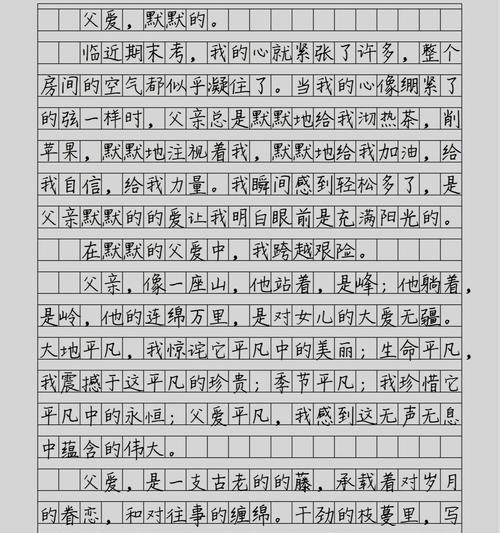 父爱，默默的。
临近期末考，我的心就紧张了许多，整个
房间的空气都似乎凝住了。当我的心像绷紧了
的弦一样时，父亲总是默默地给我沏热茶，削
苹果，默默地注视着我，默默地给我加油，给
我自信，给我力量。我瞬间感到轻松多了，是
父亲默默的的爱让我明白眼前是充满阳光的。
在默默的父爱中，我跨越艰险。
父亲，像一座山，他站着，是峰；他躺着，
是岭，他的连绵万里，是对女儿的大爱无疆。
大地平凡，我惊诧它平凡中的美丽；生命平凡，
我震撼于这平凡的珍贵；季节平凡；我珍惜它
平凡中的永恒；父爱平凡，我感到这无声无息
中蕴含的伟大。
父爱，是一支古老的的藤，承载着对岁月
的眷恋，和对往事的缠绵。干劲的枝蔓里，写